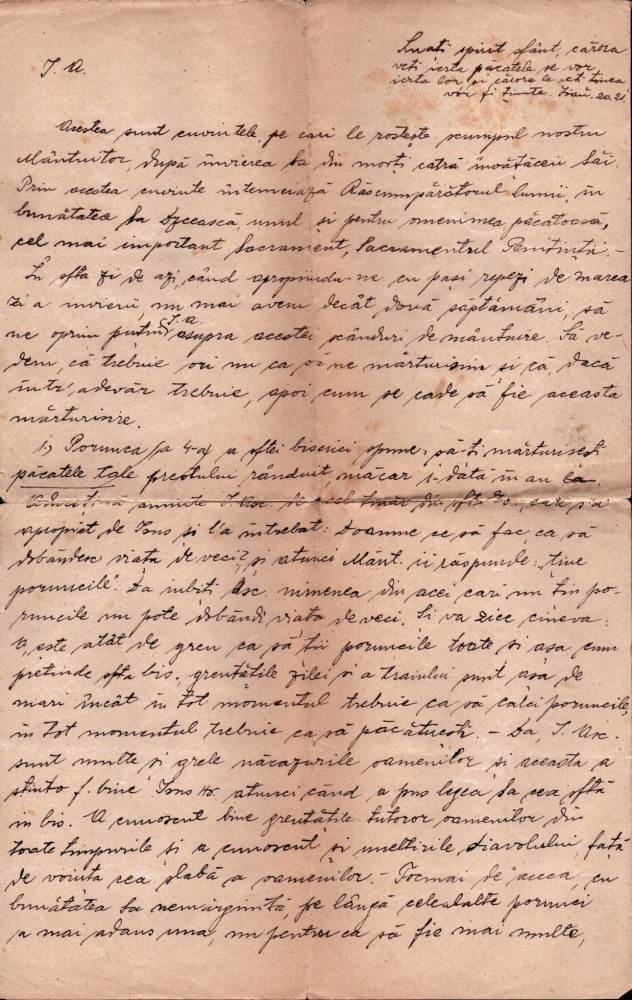 Luați spirit sfânt, cărora
veți ierta păcatele se vor
ierta lor și cărora le veți ținea
vor fi ținute. Ioan. 20.21.
I. A.
Acestea sunt cuvintele, pe cari le rostește scumpul nostru
Mântuitor, după învierea Sa din morți cătră învățăceii Săi.
Prin acestea cuvinte întemeiază Răscumpărătorul lumii, in
bunătatea Sa Dzeească, unul și pentru omenimea păcătoasă,
cel mai important Sacrament, Sacramentul Penitinții. -
În sfta zi de azi, când apropiindu-ne cu pași repezi de marea
zi a învierii, nu mai avem decât două săptămâni, să
ne oprim puțin I. A. asupra acestei scânduri de mântuire. Să ve-
dem, că trebuie ori nu ca să ne mărturisim și că, dacă
într'adevăr trebuie, apoi cum se cade să fie aceasta
mărturisire.
1.) Porunca a 4-a a sftei biserici spune: să-ți mărturisești
păcatele tale preotului rânduit măcar 1-dată în an la
aminte I. Asc. de acel tinăr din sfta Ev. care s'a
apropiet de Isus și l'a întrebat: Doamne ce să fac, ca să
dobândesc viața de veci? și atunci Mânt. ii răspunde: "ține
poruncile". Da iubiți Asc. nimenea din acei cari nu țin po-
runcile nu pote dobândi viața de veci. Și va zice cineva:
O, este atât de greu ca să ții poruncile toate și așa cum
pretinde sfta bis., greutățile zilei și a traiului sunt așa de
mari încât în tot momentul trebuie ca să calci poruncile,
in tot momentul trebuie ca să păcătuești. - Da, I. Asc.
sunt multe și grele năcazurile oamenilor și aceasta a
știuto f. bine Isus Hs. atunci când a pus legea Sa cea sftă
in bis. A cunoscut bine greutățile tuturor oamenilor din
toate timpurile și a cunoscut și uneltirile diavolului față
de voința cea slabă a oamenilor. - Tocmai de aceea, cu
bunătatea Sa nemărginită, pe lângă celealalte porunci
a mai adaus una, nu pentru ca să fie mai multe,